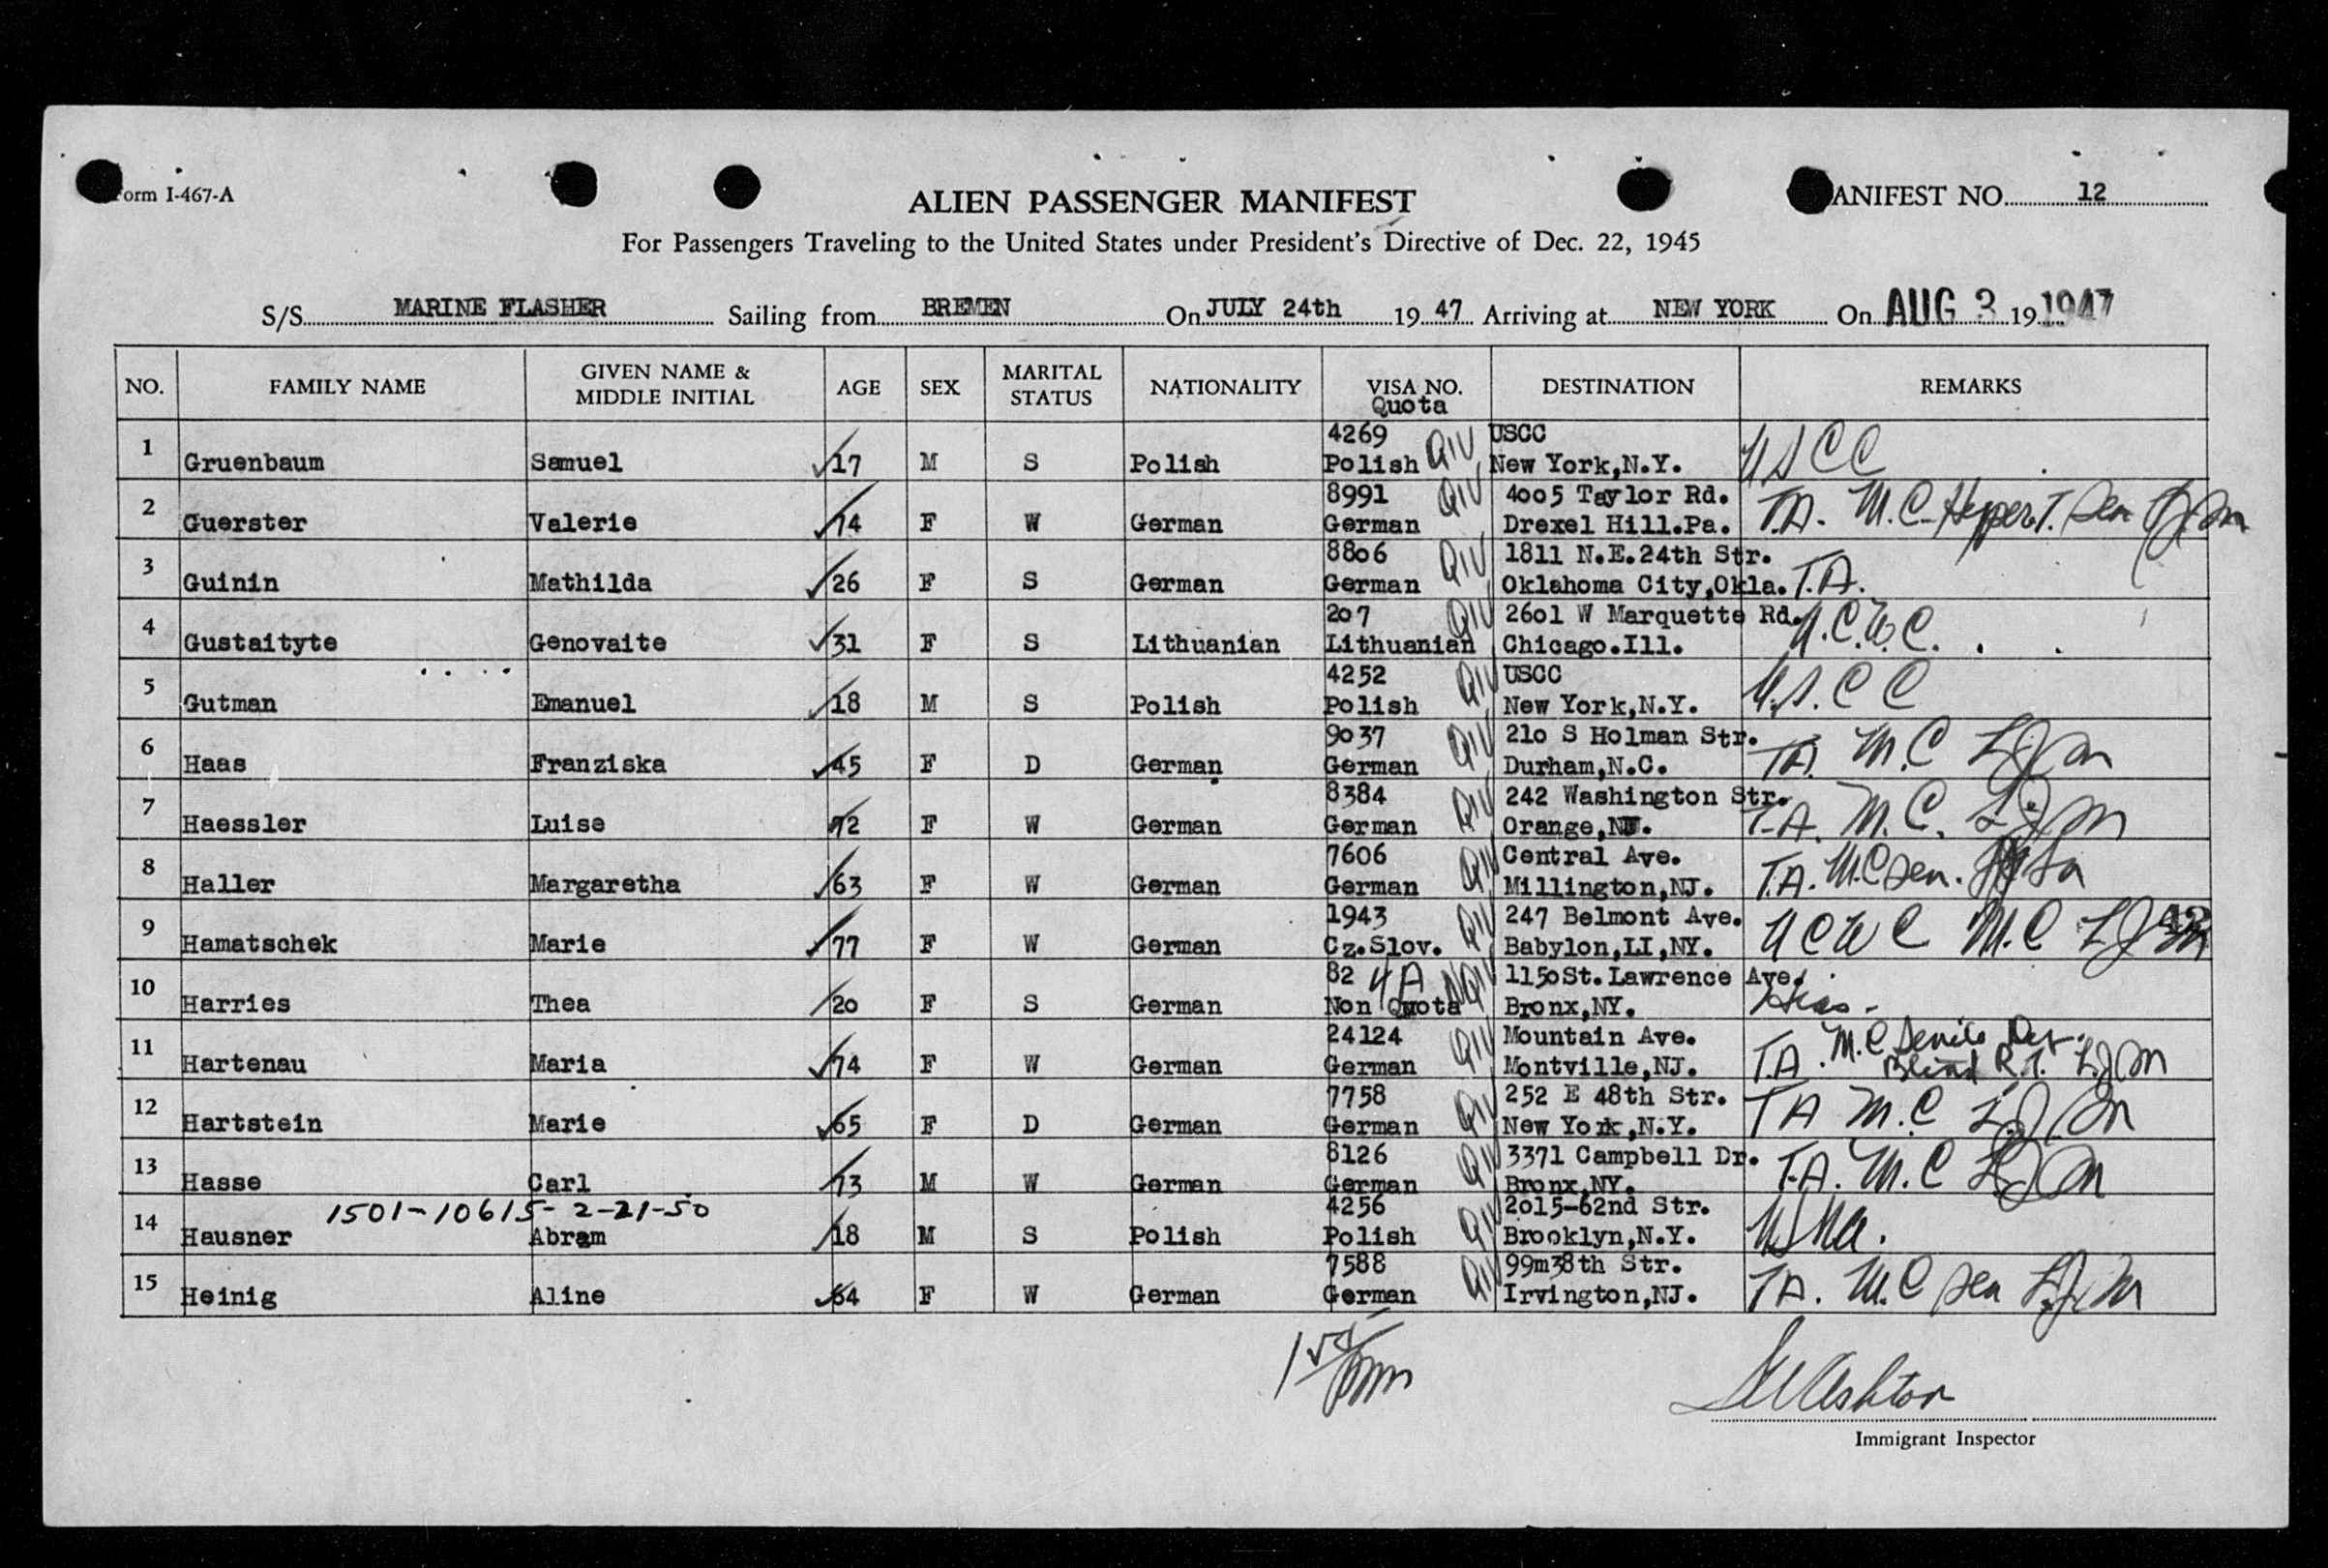 Form I-467-A
ALIEN PASSENGER MANIFEST
MANIFEST NO. 12
For Passengers Traveling to the United States under President's Directive of Dec. 22, 1945
S/S MARINE FLASHER Sailing from BREMEN On JULY 24th 19 47 Arriving at NEW YORK On AUG 3 19 1947
NO. FAMILY NAME GIVEN NAME & MIDDLE INITIAL AGE SEX MARITAL STATUS NATIONALITY VISA NO. Quota DESTINATION REMARKS
4269 QIV USCC
1 Gruenbaum Samuel 17 M S Polish Polish New York,N.Y. USCC
8991 QIV 4005 Taylor Rd.
2 Guerster Valerie 74 F W German German Drexel Hill.Pa. T.A. M.C. HyperT. Sen
8806 QIV 1811 N.E.24th Str.
3 Guinin Mathilda 26 F S German German Oklahoma City,Okla. T.A.
207 QIV 2601 W Marquette Rd.
4 Gustaityte Genovaite 31 F S Lithuanian Lithuanian Chicago.Ill. N.C.W.C.
4252 QIV USCC
5 Gutman Emanuel 18 M S Polish Polish New York,N.Y. U.S.C C
9037 QIV 210 S Holman Str.
6 Haas Franziska 45 F D German German Durham,N.C. T.A. M.C LJM
8384 QIV 242 Washington Str.
7 Haessler Luise 72 F W German German Orange,NJ. T.A. M.C. LJM
7606 QIV Central Ave.
8 Haller Margaretha 63 F W German German Millington,NJ. T.A. M.C Sen.
1943 QIV 247 Belmont Ave.
9 Hamatschek Marie 77 F W German Cz.Slov. Babylon,LI,NY. NCWC M.C LJM
82 4A NQIV 1150St. Lawrence Ave.
10 Harries Thea 20 F S German Non Quota Bronx,NY. Hias-
24124 QIV Mountain Ave.
11 Hartenau Maria 74 F W German German Montville,NJ. T.A. M.C Senile Blind LJM
7758 QIV 252 E 48th Str.
12 Hartstein Marie 65 F D German German New York,N.Y. TA M.C LJM
8126 QIV 3371 Campbell Dr.
13 Hasse Carl 73 M W German German Bronx,NY. T.A. M.C LJM
1501-10615- 2-21-50 4256 QIV 2015-62nd Str.
14 Hausner Abram 18 M S Polish Polish Brooklyn,N.Y. USNA.
7588 QIV 99m38th Str.
15 Heinig Aline 64 F W German German Irvington,NJ. T.A. M.C Sen LJM
Immigrant Inspector